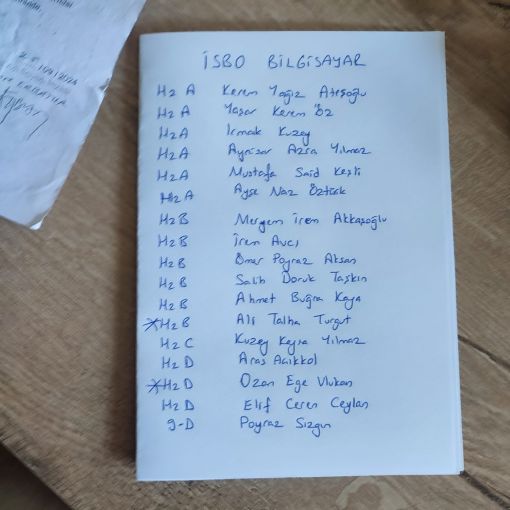 İSBO BİLGİSAYAR
H2 A Kerem Yağız Ateşoğlu
H2 A Yaşar Kerem Öz
H2A Irmak Kuzey
H2A Aynisar Azra Yılmaz
H2A Mustafa Said Keşli
H2 A Ayşe Naz Öztürk
H2B Meryem İrem Akkaşoğlu
H2B İrem Avcı
H2B Ömer Poyraz Aksan
H2B Salih Doruk Taşkın
H2B Ahmet Buğra Kaya
*H2B Ali Talha Turgut
H2 C Kuzey Kayra Yılmaz
H2 D Aras Acıkkol
*H2D Ozan Ege Vlukan
H2 D Elif Ceren Ceylan
9-D Poyraz Sizgın